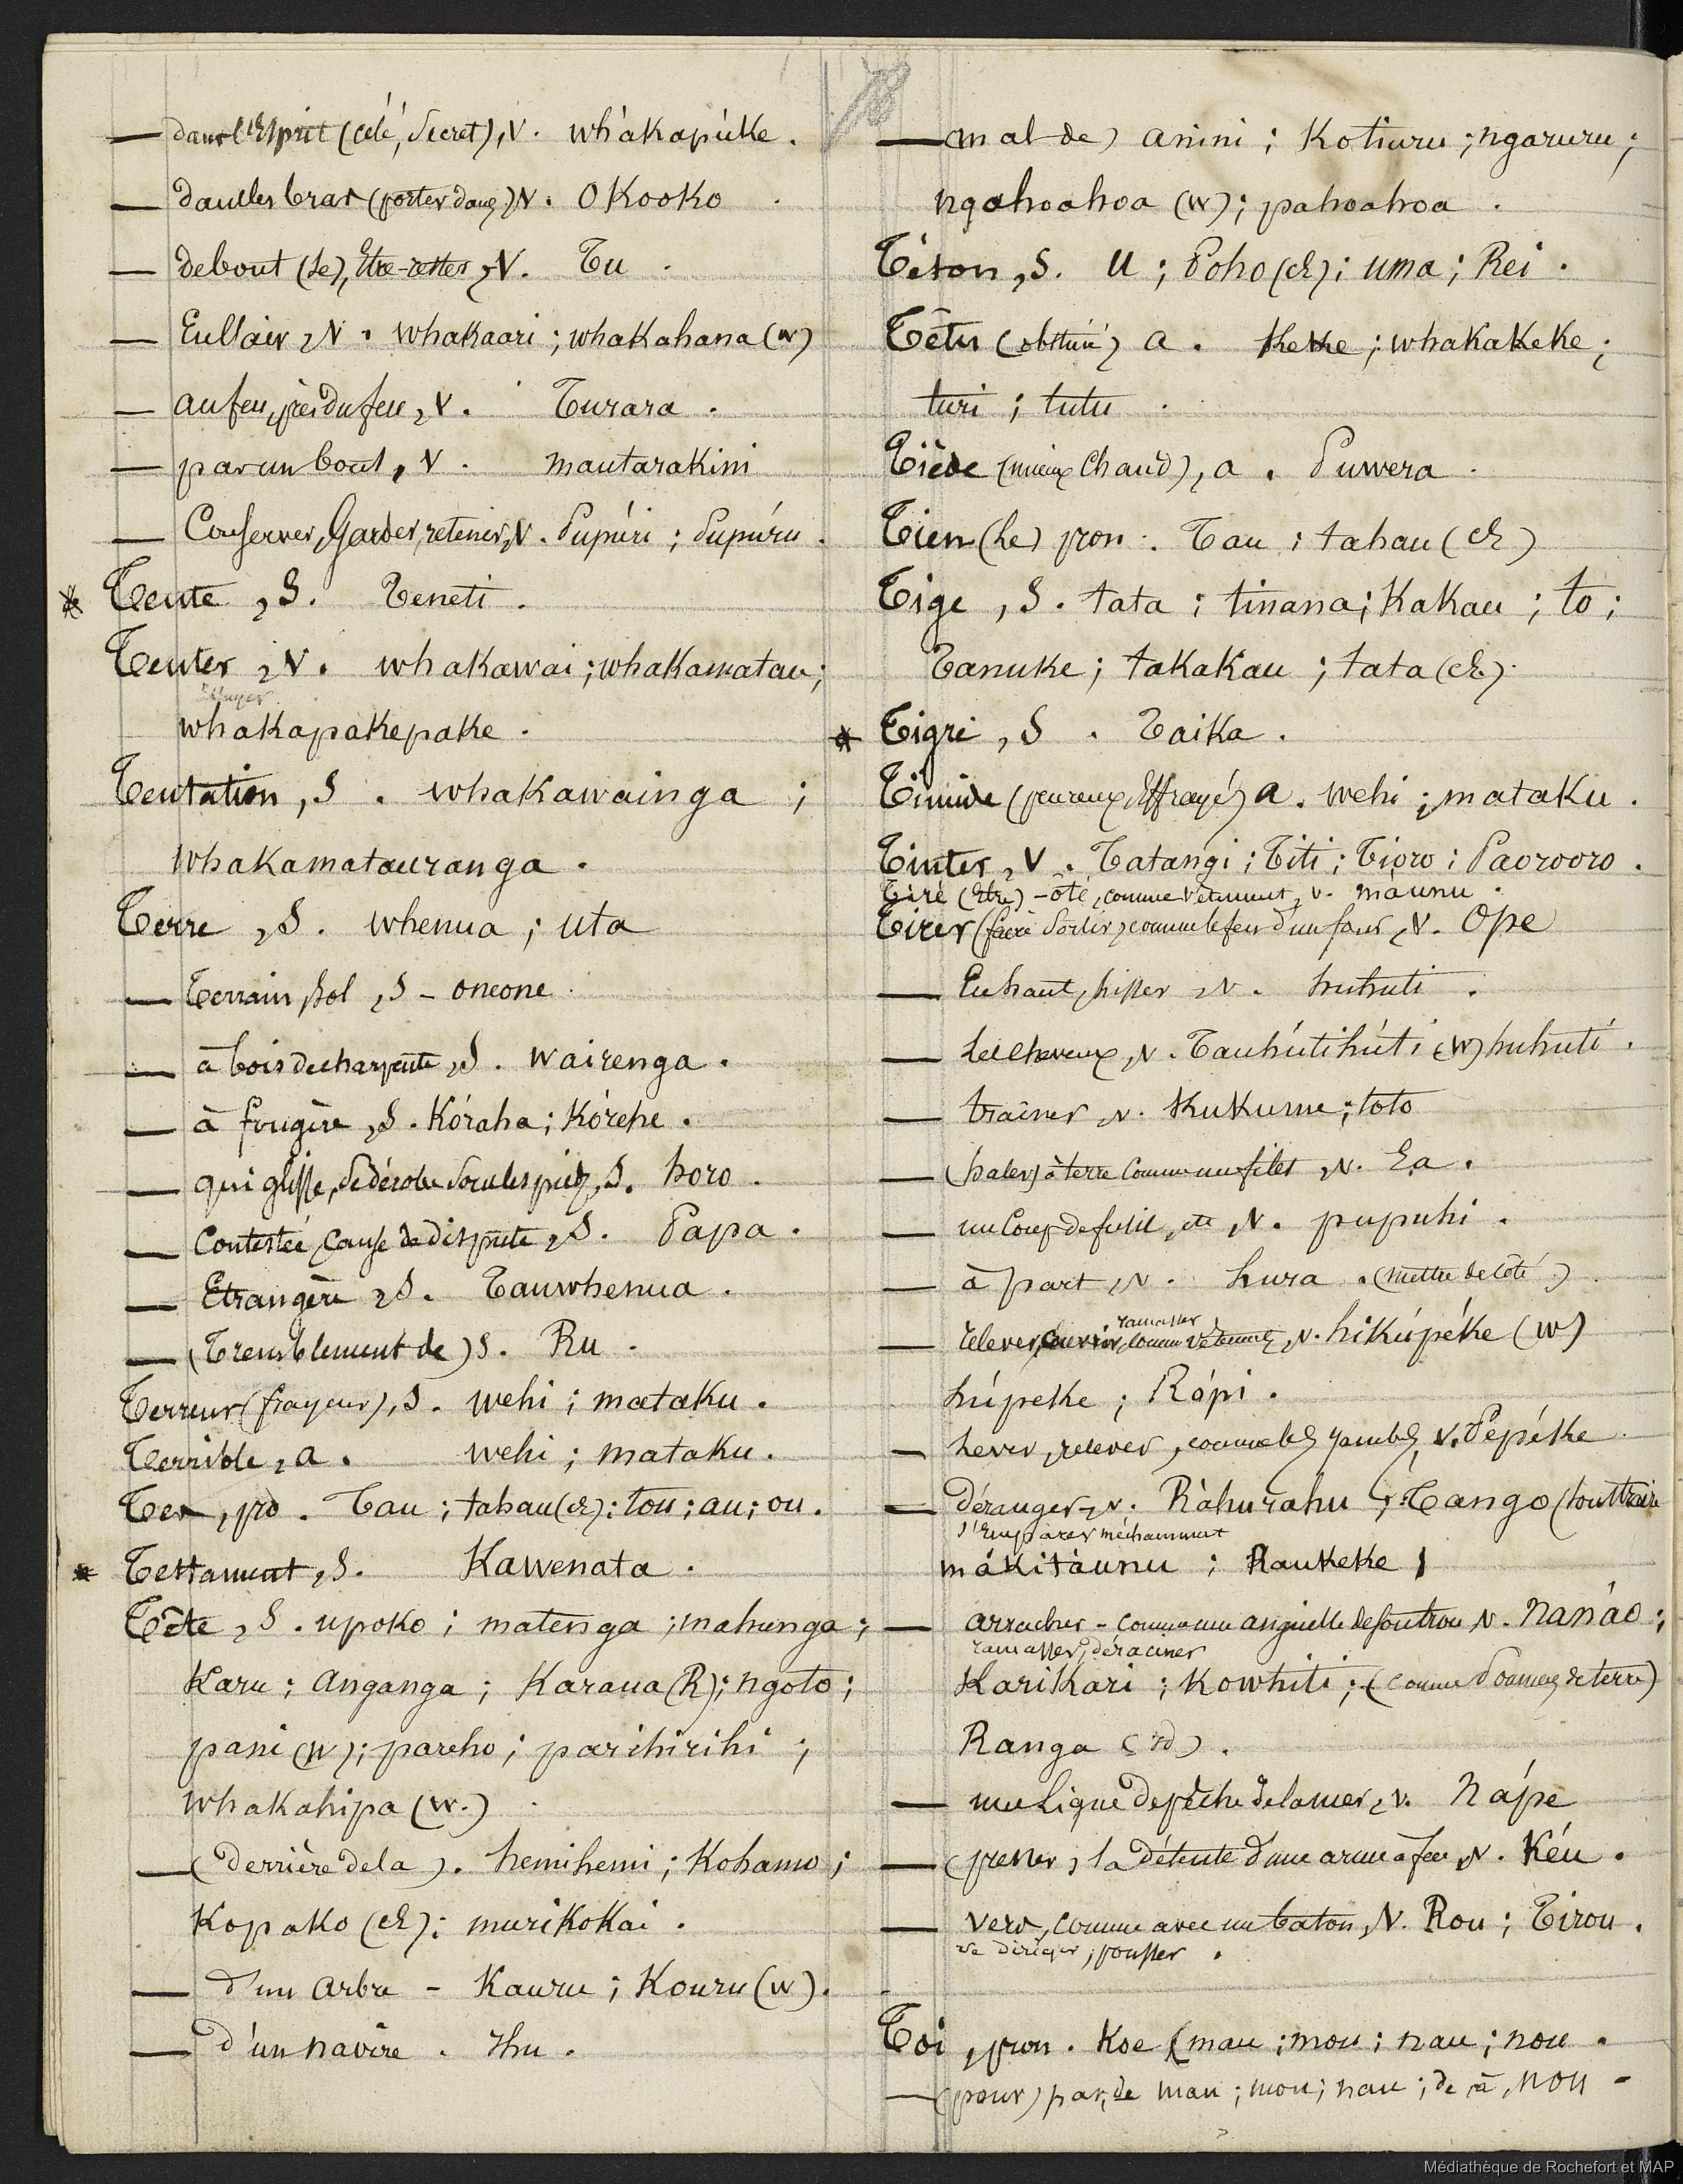 78
— dans l'Esprit (celé, Secret), V. whàkapùke.
— dans les bras (porter dans) V. Okooko
— debout (se), Etre-rester, V. Tu.
— En l'air, V. whakaari; whakahana (w)
— au feu, près du feu, V. Turara.
— par un bout, V. mautarakini
— Conserver, Garder, retenir, V. Pupúri; Pupúru.
* Tente, S. Teneti.
Tenter, V. whakawai; whakamatau;
Essayer
whakapakepake.
Tentation, S. whakawainga;
whakamatauranga.
Terre, S. whenua; uta
— Terrain, Sol, S - oneone.
— à bois de charpente, S. wairenga.
— à fougère, S. Kóraha; Kórehe.
— qui glisse, se dérobe sous les pieds, S. horo.
— Contestée, Cause de dispute, S. Papa.
— Etrangère, S. Tauwhenua.
— (Tremblement de) S. Ru.
Terreur (frayeur), S. wehi; mataku.
Terrible, a. wehi; mataku.
Tes, pro. Tau; tahau (ch); tou; au; ou.
* Testament, S. Kawenata.
Tête, S. upoko; matenga; mahunga;
Karu; anganga; Karaua (R); ngoto;
pane (w); pareho; parihirihi;
whakahipa (w.)
— (derrière de la). hemihemi; Kohamo;
Kopako (ch); murikokai.
— d'un arbre - Kauru; Kouru (w).
— d'un navire. Ihu.
— (mal de) anini; Kotiuru; ngaruru;
ngahoahoa (w); pahoahoa.
Téton, S. U; Poho (ch); uma; Rei.
Têtu (obstiné) a. Keke; whakakeke;
turi; tutu.
Tiède (mieux Chaud), a. Puwera.
Tien (Le) pron. Tau; tahau (ch)
Tige, S. tata; tinana; Kakau; to;
Tanuke; takakau; tata (ch).
* Tigre, S. Taika.
Timide (peureux, Effrayé) a. wehi; mataku.
Tinter, V. Tatangi; Titi; Tioro; Paorooro.
Tiré (Etre) - ôté, comme vêtement, v. màunu.
Tirer (faire Sortir, comme le feu d'un four, V. Ope
— En haut, hisser, V. huhuti.
— Les Cheveux, v. Tauhútihúti (w) huhuti.
— traîner, v. Kukume; toto
— (haler) à terre comme un filet, v. Ea.
— un Coup de fusil, etc, V. pupuhi.
— à part, v. hura. (mettre de côté)
ramasser
— relever, ouvrir, comme vêtement, v. hikúpéke (w)
húpeke; Rápi.
— Lever, relever, comme les jambes, v. Pepéke
— déranger, v. Ràhurahu; Tango (soustraire
s'Emparer méchamment
màkitàunu; Raukeke;
— arracher - comme une anguille de son trou, v. Nanáo;
ramasser, déraciner
Karikari; Kowhiti; (comme Pommes de terre)
Ranga (id).
— une Ligne de pêche de la mer, v. Nápe
— (presser) la détente d'une arme à feu, v. Kéu.
— vers, comme avec un bâton, V. Rou; Tirou.
se diriger, pousser.
Toi, pron. Koe (mau; mou; nau; nou.
— (pour) par, de mau; mou; nau; de, à, nou -
Médiathèque de Rochefort et MAP